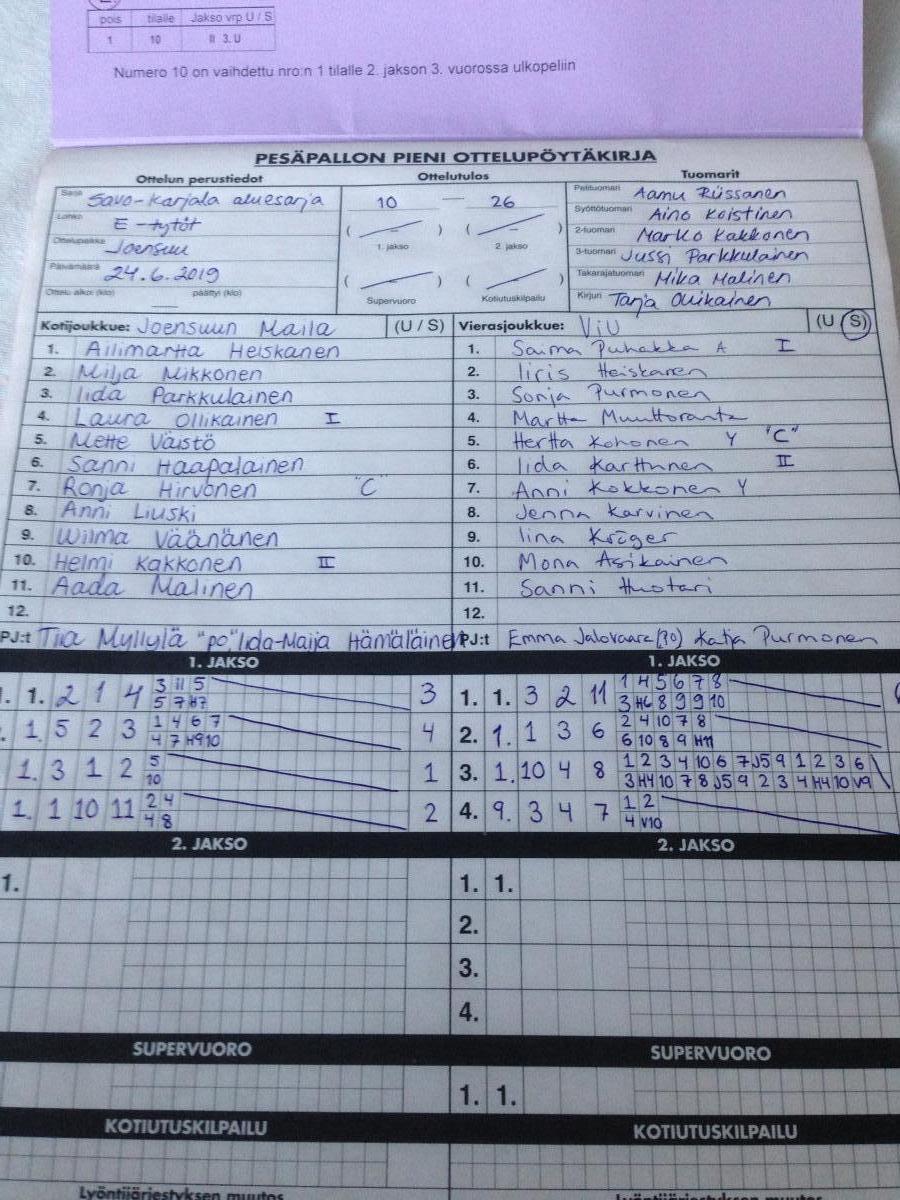 pois tilalle Jakso vrp U / S
1 10 II 3. U
Numero 10 on vaihdettu nro:n 1 tilalle 2. jakson 3. vuorossa ulkopeliin
PESÄPALLON PIENI OTTELUPÖYTÄKIRJA
Ottelun perustiedot Ottelutulos Tuomarit
Sarja Savo-Karjala aluesarja
Lohko E-tytöt
Ottelupaikka Joensuu
Päivämäärä 24.6.2019
Ottelu alkoi (klo) päättyi (klo)
10 — 26
( — ) ( — )
1. jakso 2. jakso
( ) ( )
Supervuoro Kotiutuskilpailu
Pelituomari Aamu Riissanen
Syöttötuomari Aino Koistinen
2-tuomari Marko Kakkonen
3-tuomari Jussi Parkkulainen
Takarajatuomari Mika Malinen
Kirjuri Tanja Ollikainen
Kotijoukkue: Joensuun Maila (U / S)
1. Ailimartta Heiskanen
2. Milja Mikkonen
3. Iida Parkkulainen
4. Laura Ollikainen I
5. Mette Väistö
6. Sanni Haapalainen
7. Ronja Hirvonen "C"
8. Anni Liuski
9. Wilma Väänänen
10. Helmi Kakkonen II
11. Aada Malinen
12.
PJ:t Tiia Myllylä "po", Iida-Maija Hämäläinen
Vierasjoukkue: ViU (U / S)
1. Saima Puhakka A I
2. Iiris Heiskanen
3. Sonja Purmonen
4. Martta Muuttoranta
5. Hertta Kohonen Y "C"
6. Iida Karttunen II
7. Anni Kokkonen Y
8. Jenna Karvinen
9. Iina Kröger
10. Mona Asikainen
11. Sanni Huotari
12.
PJ:t Emma Jalovaara (PO) Katja Purmonen
1. JAKSO
1. 2 1 4 3 11 5 3
5 7 H7
1. 5 2 3 1 4 6 7 4
4 7 H9 10
1. 3 1 2 5 1
10
1. 1 10 11 2 4 2
4 8
2. JAKSO
1.
SUPERVUORO
KOTIUTUSKILPAILU
Lyöntijärjestyksen muutos
1. JAKSO
1. 1. 3 2 11 1 4 5 6 7 8
3 H6 8 9 9 10
2. 1. 1 3 6 2 4 10 7 8
6 10 8 9 H11
3. 1. 10 4 8 1 2 3 4 10 6 7 J5 9 1 2 3 6
3 H4 10 7 8 J5 9 2 3 4 H4 10 V9
4. 9. 3 4 7 1 2
4 V10
2. JAKSO
1. 1.
2.
3.
4.
SUPERVUORO
1. 1.
KOTIUTUSKILPAILU